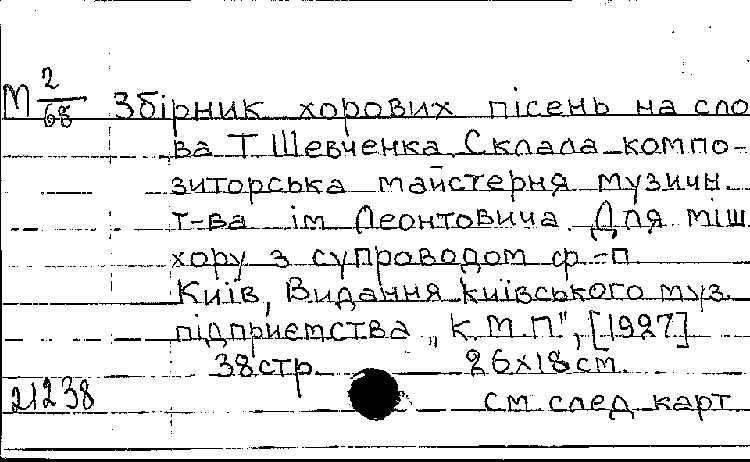 М 2/68 Збірник хорових пісень на сло
ва Т Шевченка. Склала компо-
зиторська майстерня музичн.
т-ва ім Леонтовича. Для міш
хору з супроводом ф-п.
Київ, Видання київського муз.
підприємства „К.М.П", [1927]
38стр. 26х18см.
21238 см. след карт